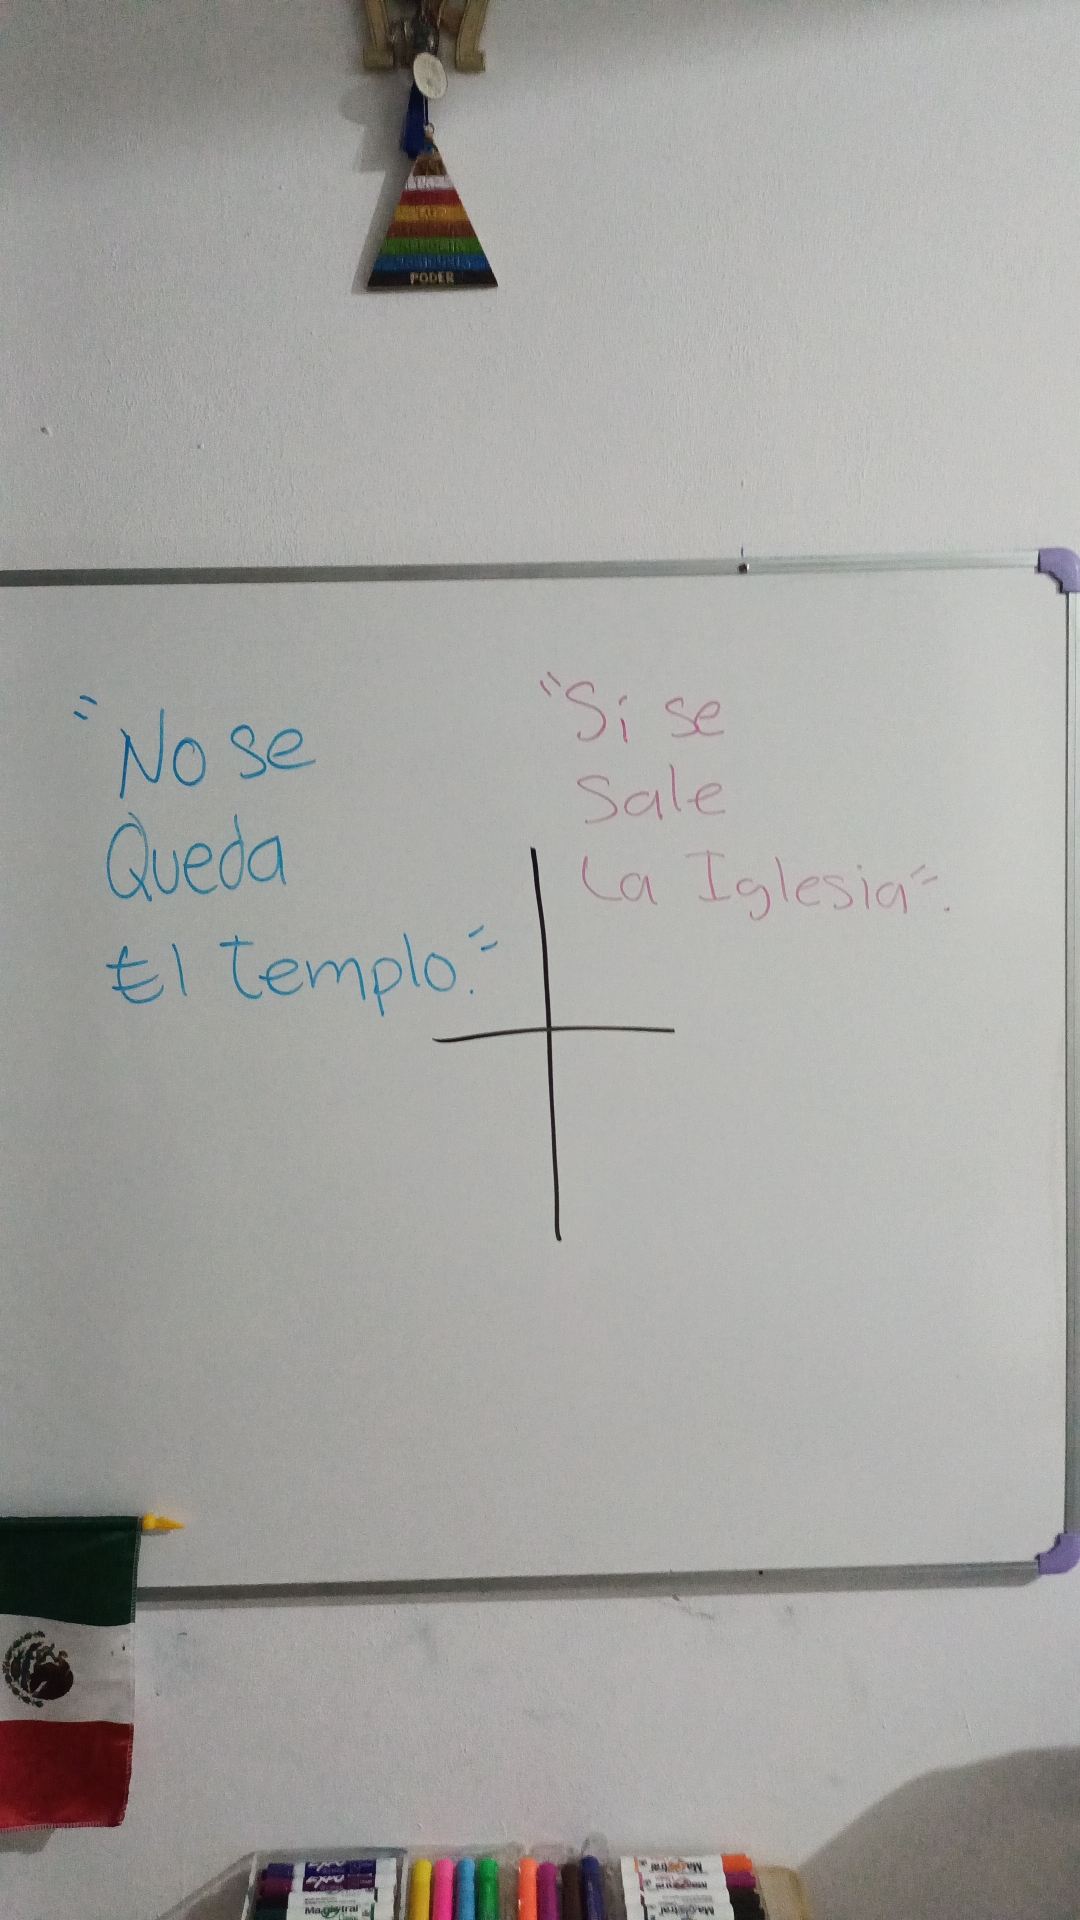 PODER
"No se
Queda
El templo."
"Si se
Sale
La Iglesia".
Magistral
Magistral